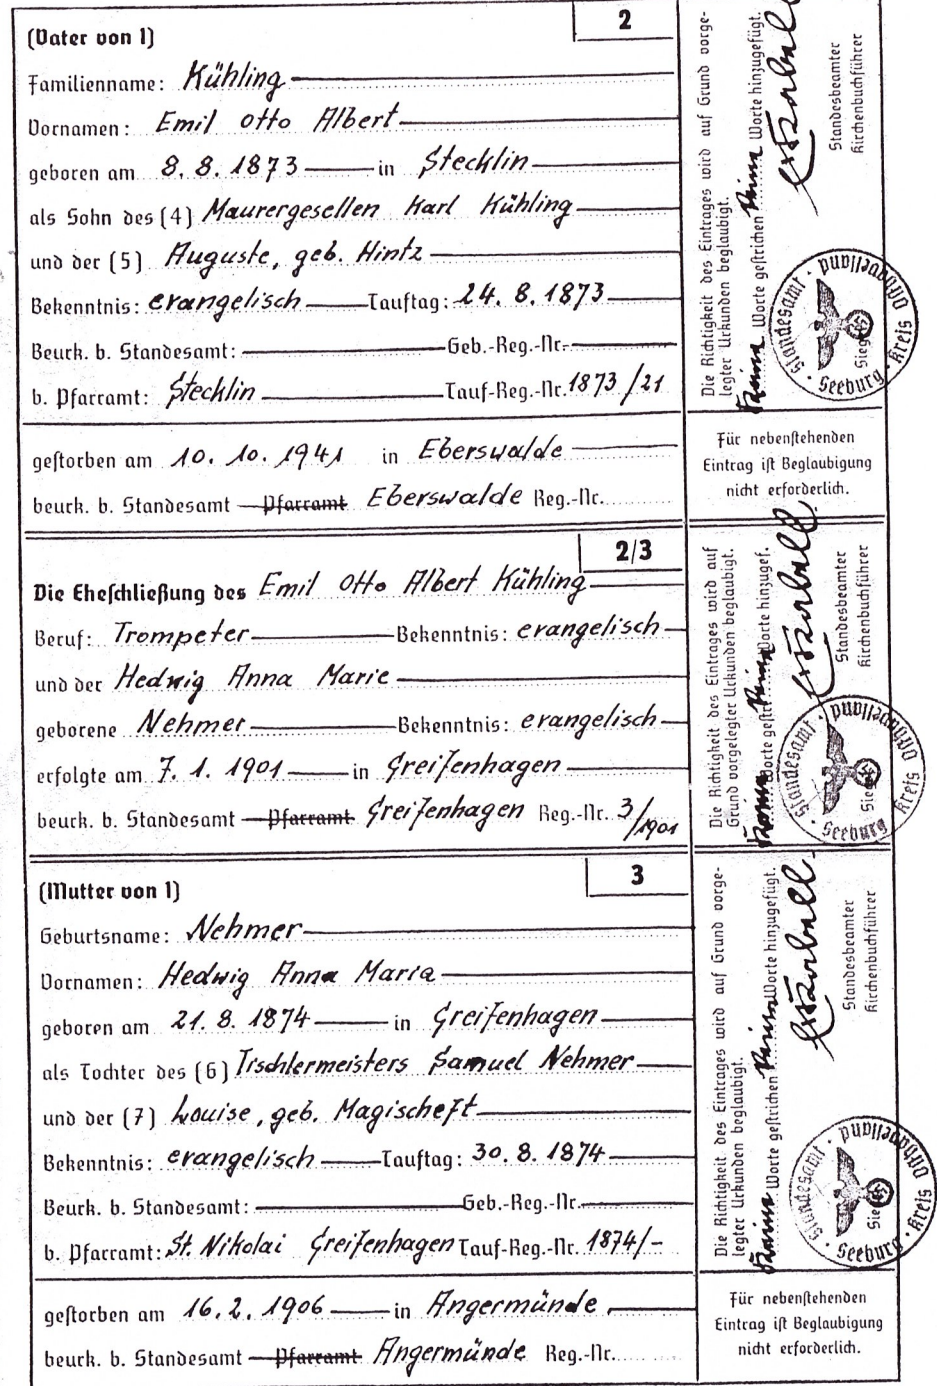 2
(Vater von 1)
Familienname: Kühling
Vornamen: Emil Otto Albert
geboren am 8. 8. 1873 in Stecklin
als Sohn des (4) Maurergesellen Karl Kühling
und der (5) Auguste, geb. Hintz
Bekenntnis: evangelisch Tauftag: 24. 8. 1873
Beurk. b. Standesamt: Geb.-Reg.-Nr.
b. Pfarramt: Stecklin Tauf-Reg.-Nr. 1873/21
gestorben am 10. 10. 1941 in Eberswalde
beurk. b. Standesamt – Pfarramt Eberswalde Reg.-Nr.
Die Richtigkeit des Eintrages wird auf Grund vorge-
legter Urkunden beglaubigt.
Keine Worte gestrichen Keine Worte hinzugefügt.
Standesbeamter
Kirchenbuchführer
Standesamt · Seeburg · Kreis Osthavelland
Siegel
Für nebenstehenden
Eintrag ist Beglaubigung
nicht erforderlich.
2/3
Die Eheschließung des Emil Otto Albert Kühling
Beruf: Trompeter Bekenntnis: evangelisch
und der Hedwig Anna Marie
geborene Nehmer Bekenntnis: evangelisch
erfolgte am 7. 1. 1901 in Greifenhagen
beurk. b. Standesamt – Pfarramt Greifenhagen Reg.-Nr. 3/1901
Die Richtigkeit des Eintrages wird auf
Grund vorgelegter Urkunden beglaubigt.
Keine Worte gestr. Keine Worte hinzugef.
Standesbeamter
Kirchenbuchführer
Standesamt · Seeburg · Kreis Osthavelland
Siegel
3
(Mutter von 1)
Geburtsname: Nehmer
Vornamen: Hedwig Anna Maria
geboren am 21. 8. 1874 in Greifenhagen
als Tochter des (6) Tischlermeisters Samuel Nehmer
und der (7) Louise, geb. Magischeft
Bekenntnis: evangelisch Tauftag: 30. 8. 1874
Beurk. b. Standesamt: Geb.-Reg.-Nr.
b. Pfarramt: St. Nikolai Greifenhagen Tauf-Reg.-Nr. 1874/-
gestorben am 16. 2. 1906 in Angermünde
beurk. b. Standesamt – Pfarramt Angermünde Reg.-Nr.
Die Richtigkeit des Eintrages wird auf Grund vorge-
legter Urkunden beglaubigt.
Keine Worte gestrichen Keine Worte hinzugefügt.
Standesbeamter
Kirchenbuchführer
Standesamt · Seeburg · Kreis Osthavelland
Siegel
Für nebenstehenden
Eintrag ist Beglaubigung
nicht erforderlich.